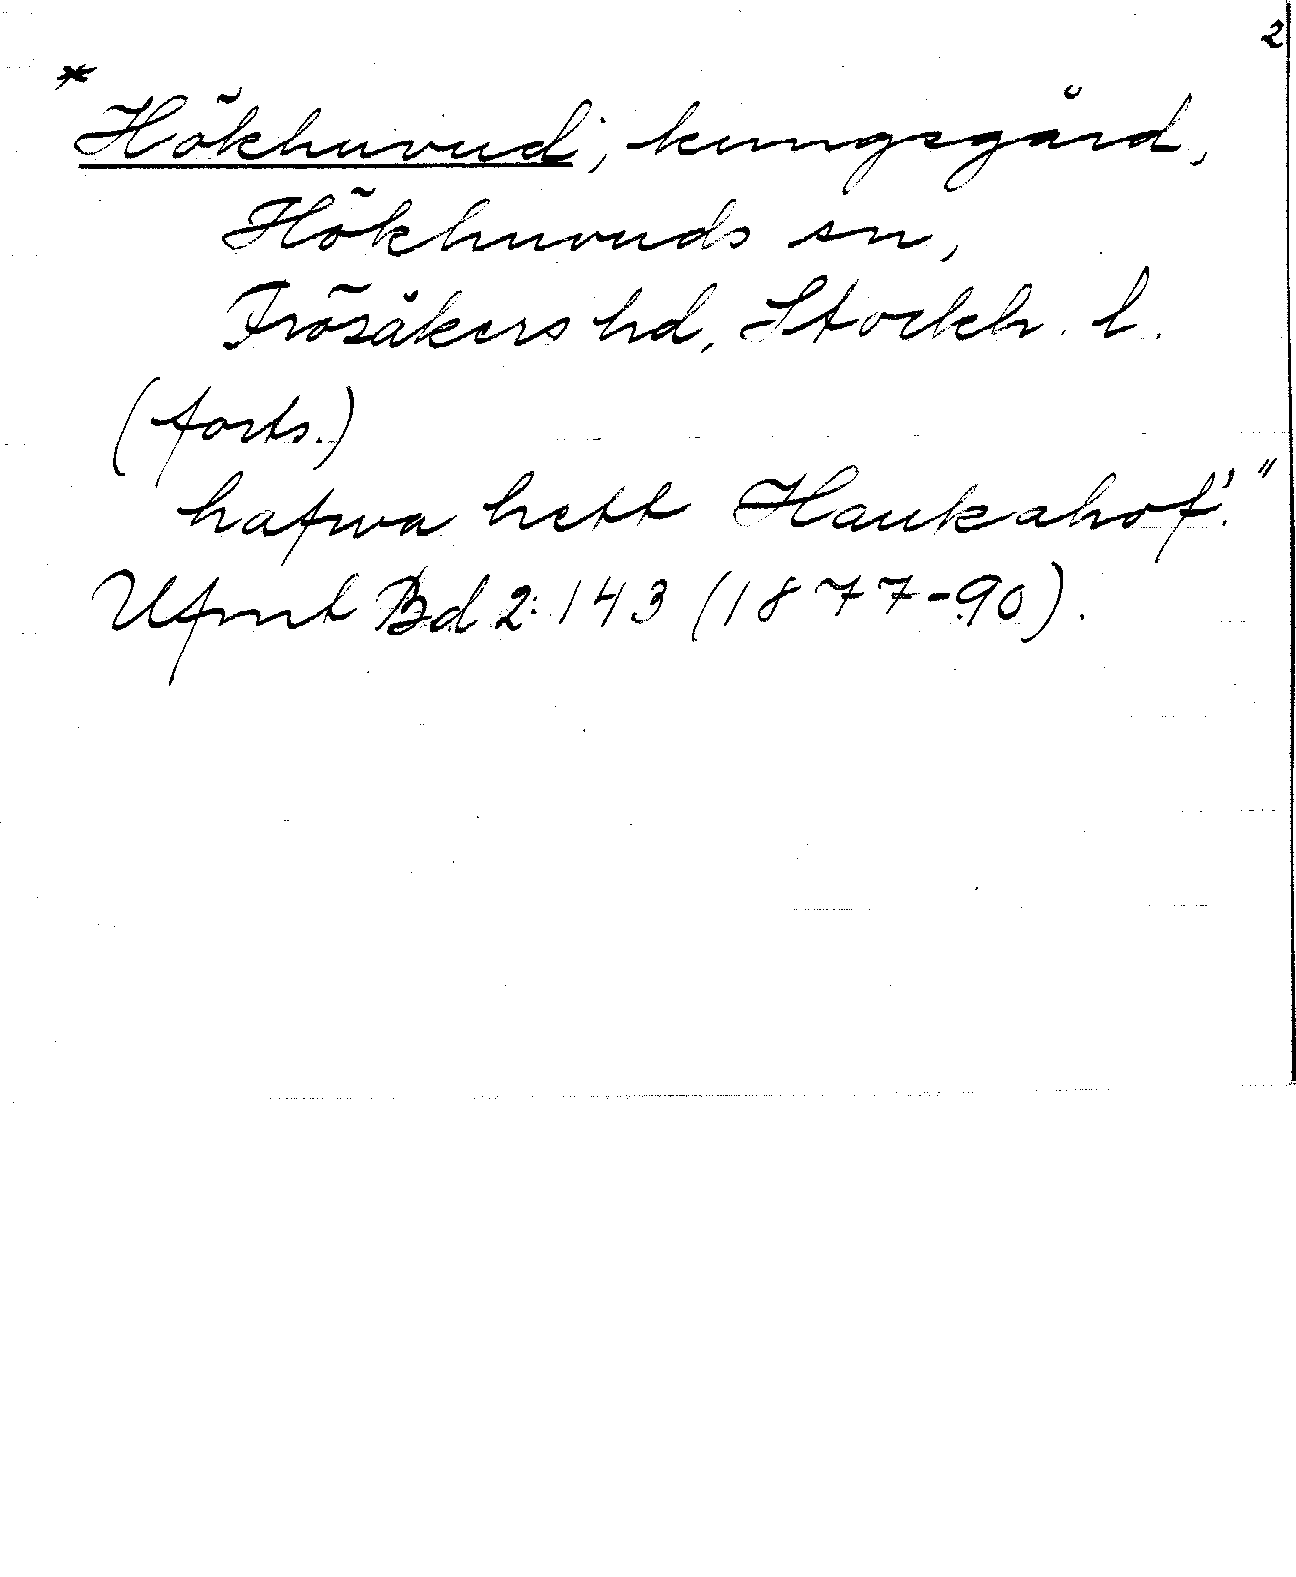 2
* Hökhuvud, kungsgård,
Hökhuvuds sn,
Frösåkers hd, Stockh. l.
(forts.)
hafwa hett Haukahof'."
Ufmt Bd 2:143 (1877-90).